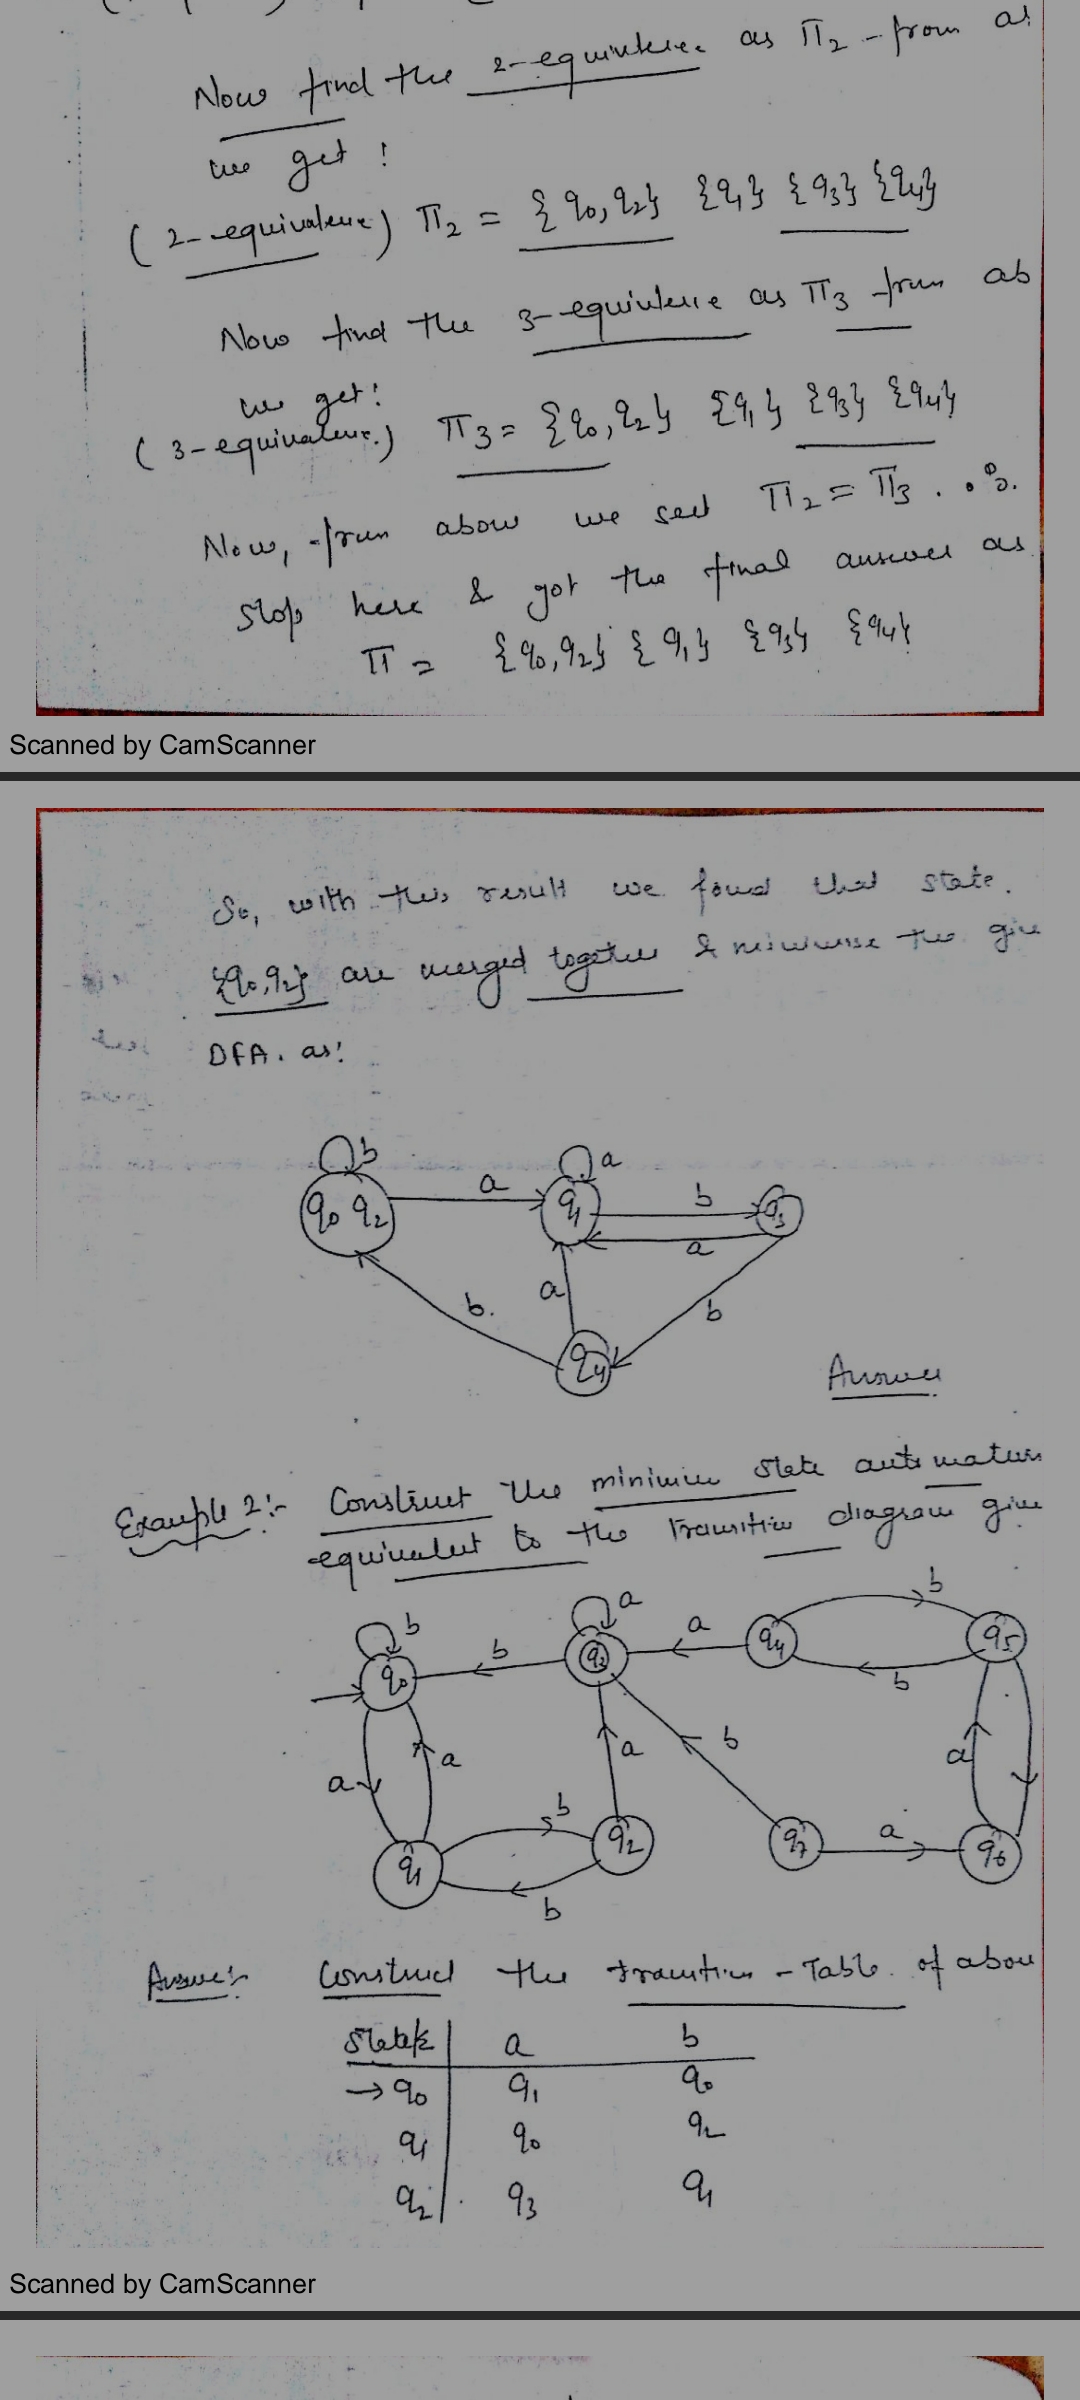 Now find the 2-equivalence as Π2 - from a
we get!
(2-equivalence) Π2 = {q0, q2} {q1} {q3} {q4}
Now find the 3-equivalence as Π3 from ab
we get!
(3-equivalence.) Π3 = {q0, q2} {q1} {q3} {q4}
Now, from above we see Π2 = Π3 . ∴
stop here & got the final answer as
Π = {q0, q2} {q1} {q3} {q4}
Scanned by CamScanner
So, with this result we found that state.
{q0, q2} are merged together & minimise the give
DFA. as!
b a
q0 q2 a q1 b q3
a
b. a b
q4
Answer
Example 2:- Construct the minimum state automaton
equivalent to the transition diagram give
b a b
q0 b q3 a q4 b q5
a a a b a
b
q1 q2 q7 a q6
b
Answer:- Construct the transition - Table. of abov
State/Σ a b
→ q0 q1 q0
q1 q0 q2
q2 q3 q1
Scanned by CamScanner